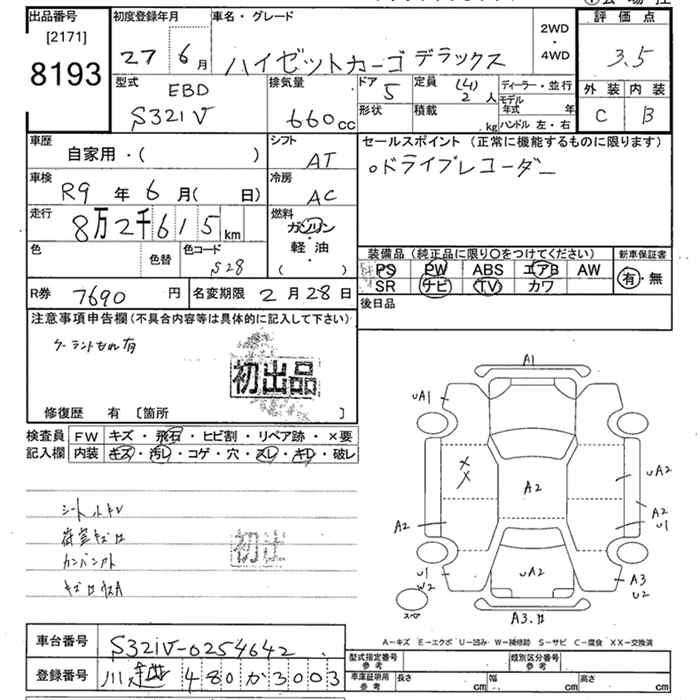 出品番号
[2171]
8193
初度登録年月
27 6月
車名・グレード
ハイゼットカーゴ デラックス
2WD
・
4WD
評価点
3.5
外装 内装
C B
型式
EBD
S321V
排気量
660cc
ドア
5
定員 (4)
2人
形状
積載
kg
ディーラー・並行
モデル年式 年
ハンドル 左・右
車歴
自家用・( )
シフト
AT
セールスポイント(正常に機能するものに限ります)
○ドライブレコーダー
車検
R9年6月( 日)
冷房
AC
走行
8万2千615km
燃料
ガソリン
軽・油
( )
色
色替
色コード
S28
装備品(純正品に限り○をつけてください)
PS PW ABS エアB AW
SR ナビ TV カワ
新車保証書
有・無
R券 7690円
名変期限 2月28日
後日品
注意事項申告欄(不具合内容等は具体的に記入して下さい)
クーラントもれ有
初出品
修復歴 有 〔箇所 〕
検査員
記入欄
FW キズ・飛石・ヒビ割・リペア跡・×要
内装 キズ・汚レ・コゲ・穴・スレ・キレ・破レ
荷室キズ
初出
A1
uA1
A2
uA2
A2
u1
A2
uA2
u1
w2
A3
u2
スペア
A3.
A-キズ E-エクボ U-凹み W-補修跡 S-サビ C-腐食 XX-交換済
車台番号 S321V-0254642
登録番号 480か3003
型式指定番号
参考
類別区分番号
参考
車庫証明用
参考
長さ cm 幅 cm 高さ cm